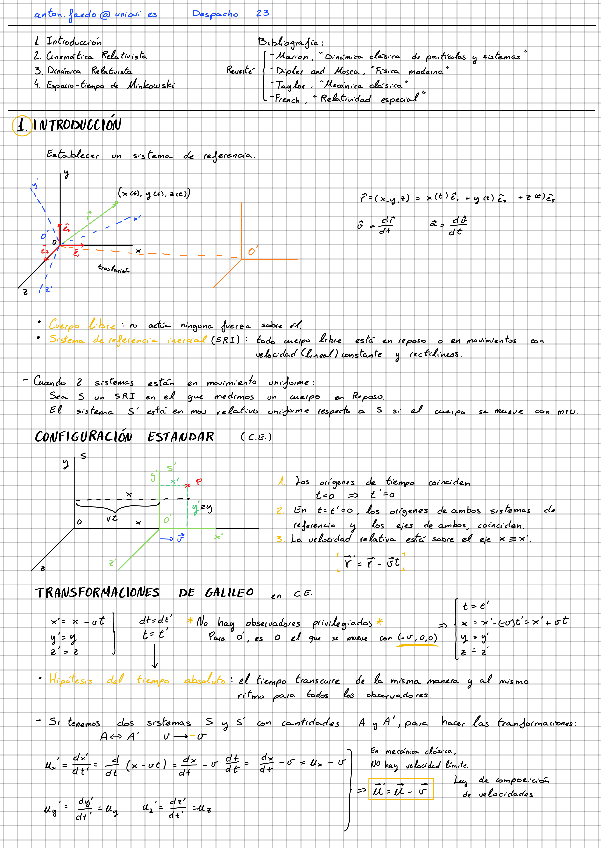 anton.faedo@uniovi.es Despacho 23
1. Introducción
2. Cinemática Relativista
3. Dinámica Relativista
4. Espacio-tiempo de Minkowski
Bibliografía:
- Marion, "Dinámica clásica de partículas y sistemas"
- Tipler and Mosca, "Física moderna"
Reverté
- Taylor, "Mecánica clásica"
- French, "Relatividad especial"
1. INTRODUCCIÓN
Establecer un sistema de referencia.
y
y'
(x(t), y(t), z(t))
r⃗
x'
x
O'
O
O'
z
z'
traslación
r⃗ = (x,y,z) = x(t) + y(t) + z(t)
v⃗ = dr⃗/dt a⃗ = dv⃗/dt
• Cuerpo libre: no actúa ninguna fuerza sobre él.
• Sistema de referencia inercial (SRI): todo cuerpo libre está en reposo o en movimientos con
velocidad (lineal) constante y rectilíneos.
- Cuando 2 sistemas están en movimiento uniforme:
Sea S un SRI en el que medimos un cuerpo en Reposo.
El sistema S' está en mov relativo uniforme respecto a S si el cuerpo se mueve con MRU.
CONFIGURACIÓN ESTANDAR (C.E.)
y S
y' S'
x x' P
y' = y
O vt x O' x'
→ v⃗
z z'
1. Los orígenes de tiempo coinciden
t=0 ⇒ t'=0
2. En t=t'=0, los orígenes de ambos sistemas de
referencia y los ejes de ambos, coinciden.
3. La velocidad relativa está sobre el eje x ≡ x'.
r⃗' = r⃗ - v⃗t
TRANSFORMACIONES DE GALILEO en C.E.
x' = x - vt
y' = y
z' = z
dt = dt'
t = t'
* No hay observadores privilegiados *
Para O', es O el que se mueve con (-v,0,0)
⇒ t = t'
x = x' - (-v)t' = x' + vt
y = y'
z = z'
• Hipótesis del tiempo absoluto: el tiempo transcurre de la misma manera y al mismo
ritmo para todos los observadores
- Si tenemos dos sistemas S y S' con cantidades A y A', para hacer las transformaciones:
A ↔ A' v → -v
ux' = dx'/dt' = d/dt (x - vt) = dx/dt - v dt/dt = dx/dt - v = ux - v
uy' = dy'/dt' = uy uz' = dz'/dt' = uz
En mecánica clásica,
NO hay velocidad límite.
⇒ u⃗' = u⃗ - v⃗
Ley de composición
de velocidades